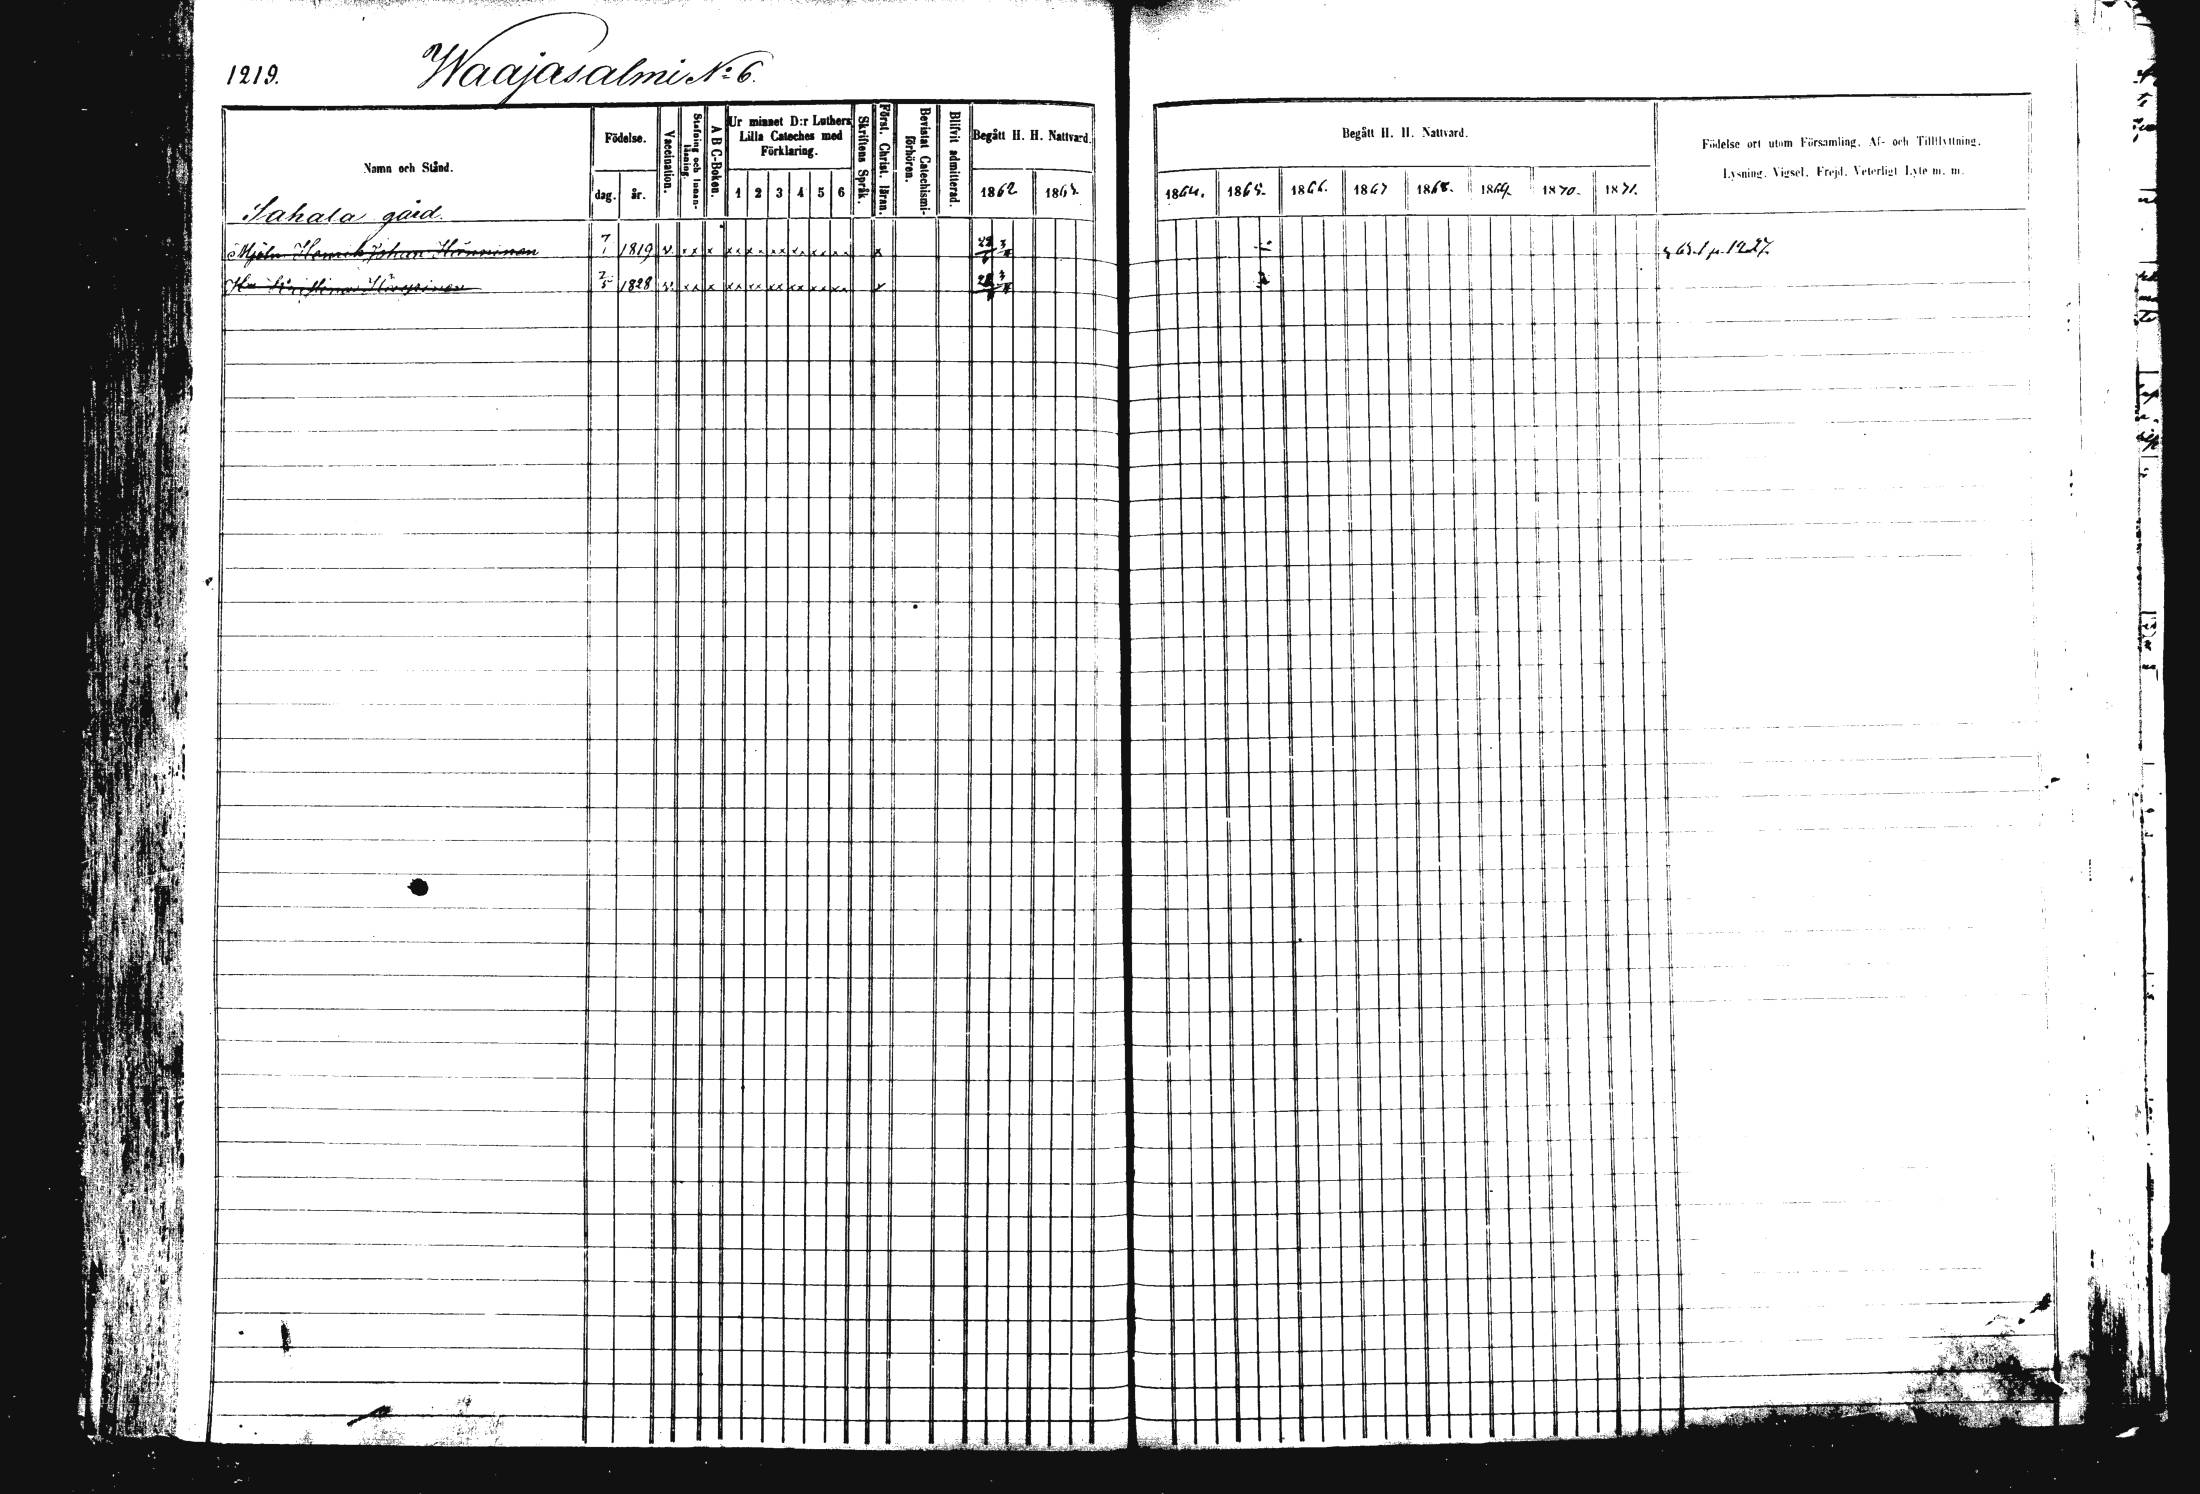 1219. Waajasalmi No 6.
Namn och Stånd.
Födelse.
dag. år.
Vaccination.
Stafning och Innanläsning.
A B C-Boken.
Ur minnet D:r Luthers
Lilla Cateches med
Förklaring.
1 2 3 4 5 6
Skriftens Språk.
Först. Christ. läran.
Bevistat Catechismi-
förhören.
Blifvit admitterad.
Begått H. H. Nattvard.
1862 1863
Sahala gård
Henrik Johan 7/1 1819 v. x x x x x x x x x x x x x x x x
2/5 1828 v. x x x x x x x x x x x x x x x x
Begått H. H. Nattvard.
1864. 1865. 1866. 1867 1868. 1869. 1870. 1871.
Födelse ort utom Församling. Af- och Tillflyttning.
Lysning. Vigsel. Frejd. Veterligt Lyte m. m.
p. 1227.